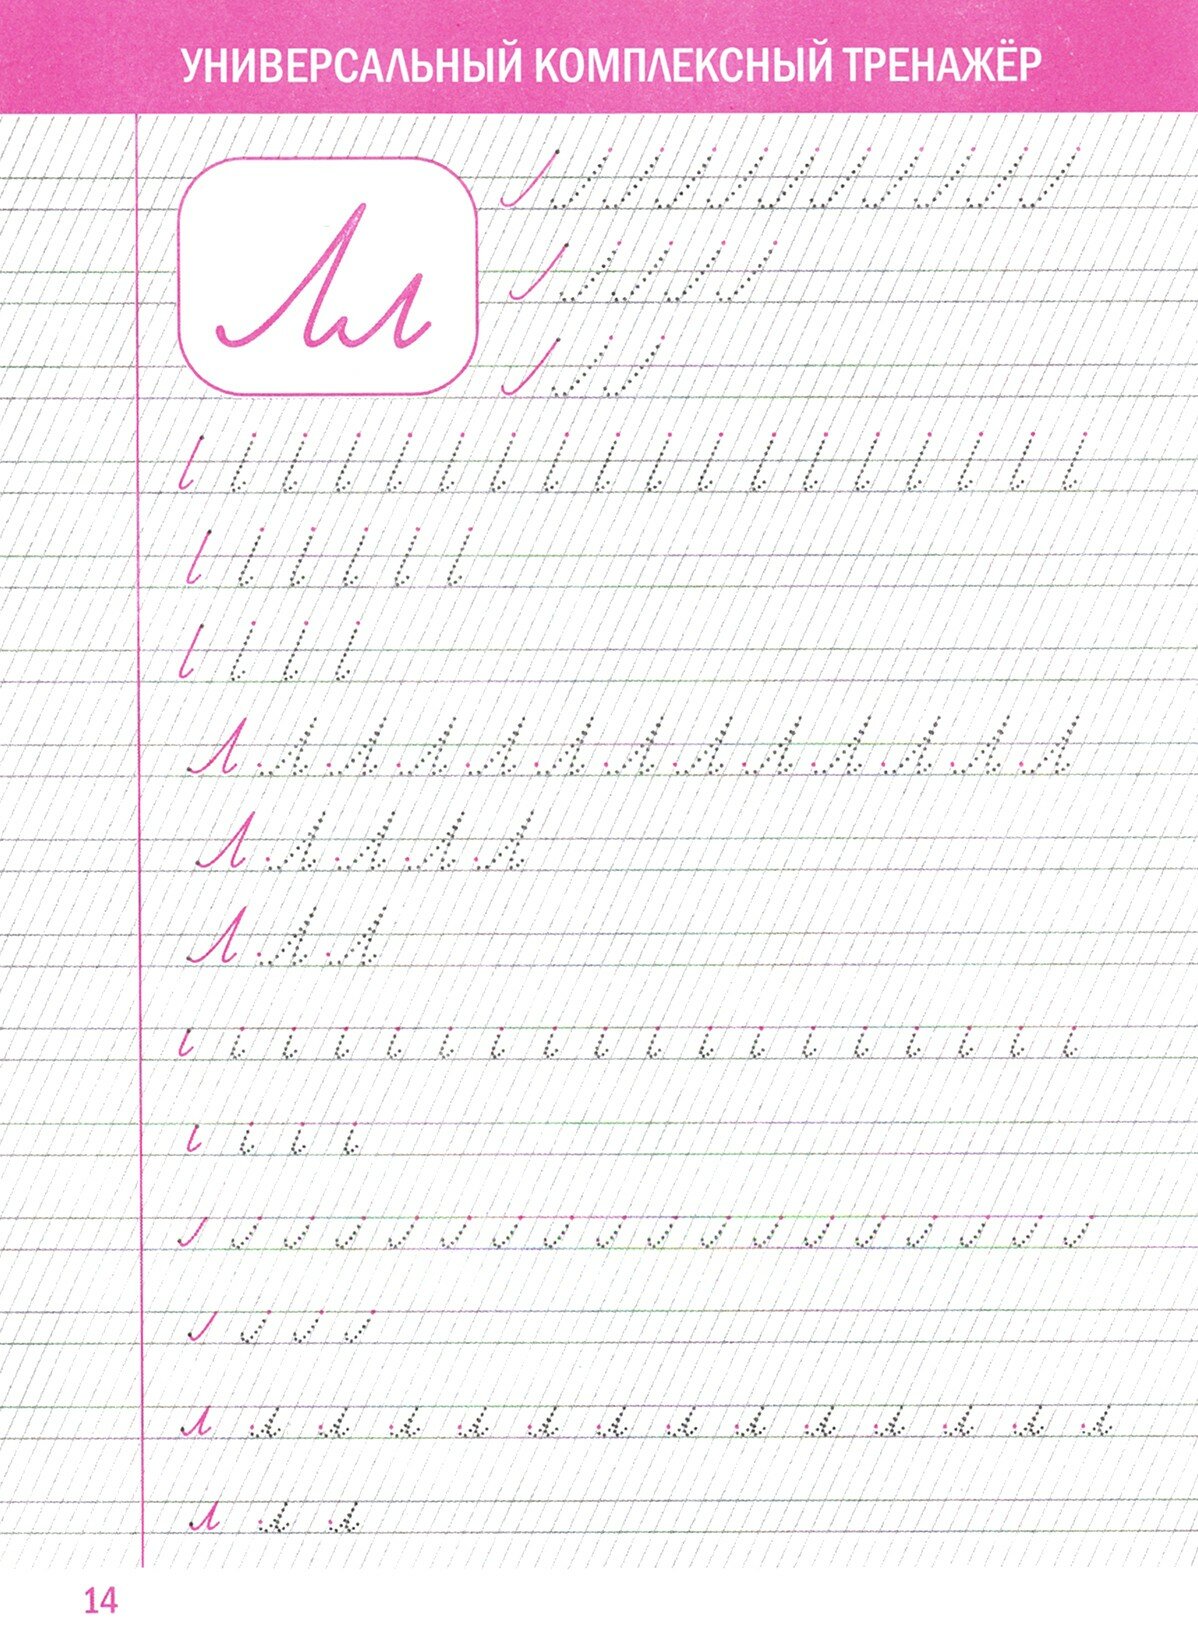 УНИВЕРСАЛЬНЫЙ КОМПЛЕКСНЫЙ ТРЕНАЖЁР
Лл
Л Л Л Л Л Л Л Л Л Л Л Л Л
Л Л Л Л Л
Л Л Л
л л л л л л л л л л л л л л
л л л
14